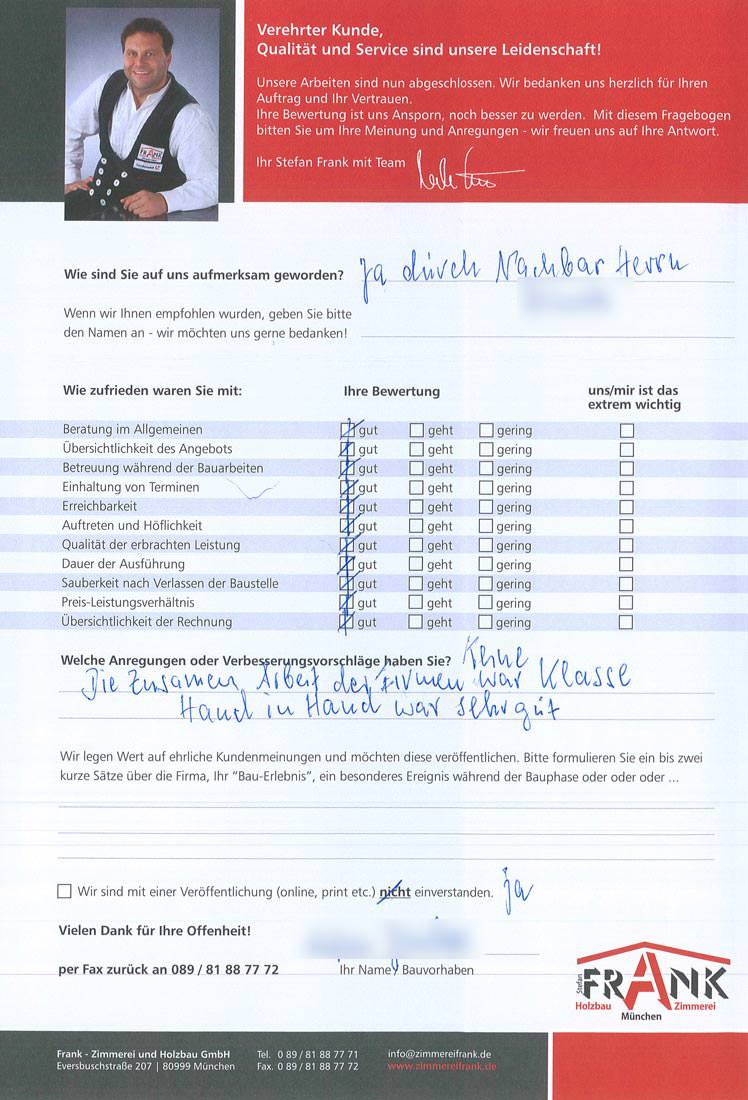 Verehrter Kunde,
Qualität und Service sind unsere Leidenschaft!
Unsere Arbeiten sind nun abgeschlossen. Wir bedanken uns herzlich für Ihren
Auftrag und Ihr Vertrauen.
Ihre Bewertung ist uns Ansporn, noch besser zu werden. Mit diesem Fragebogen
bitten Sie um Ihre Meinung und Anregungen - wir freuen uns auf Ihre Antwort.
Ihr Stefan Frank mit Team
FRANK
Wie sind Sie auf uns aufmerksam geworden? Ja durch Nachbar Herrn
Wenn wir Ihnen empfohlen wurden, geben Sie bitte
den Namen an - wir möchten uns gerne bedanken!
Wie zufrieden waren Sie mit: Ihre Bewertung uns/mir ist das
extrem wichtig
Beratung im Allgemeinen gut geht gering
Übersichtlichkeit des Angebots gut geht gering
Betreuung während der Bauarbeiten gut geht gering
Einhaltung von Terminen gut geht gering
Erreichbarkeit gut geht gering
Auftreten und Höflichkeit gut geht gering
Qualität der erbrachten Leistung gut geht gering
Dauer der Ausführung gut geht gering
Sauberkeit nach Verlassen der Baustelle gut geht gering
Preis-Leistungsverhältnis gut geht gering
Übersichtlichkeit der Rechnung gut geht gering
Welche Anregungen oder Verbesserungsvorschläge haben Sie? Keine
Die Zusamen Arbeit der Firmen war Klasse
Hand in Hand war sehr gut
Wir legen Wert auf ehrliche Kundenmeinungen und möchten diese veröffentlichen. Bitte formulieren Sie ein bis zwei
kurze Sätze über die Firma, Ihr "Bau-Erlebnis", ein besonderes Ereignis während der Bauphase oder oder oder ...
Wir sind mit einer Veröffentlichung (online, print etc.) nicht einverstanden. ja
Vielen Dank für Ihre Offenheit!
per Fax zurück an 089 / 81 88 77 72 Ihr Name, Bauvorhaben
Stefan FRANK
Holzbau Zimmerei
München
Frank - Zimmerei und Holzbau GmbH Tel. 0 89 / 81 88 77 71 info@zimmereifrank.de
Eversbuschstraße 207 | 80999 München Fax. 0 89 / 81 88 77 72 www.zimmereifrank.de